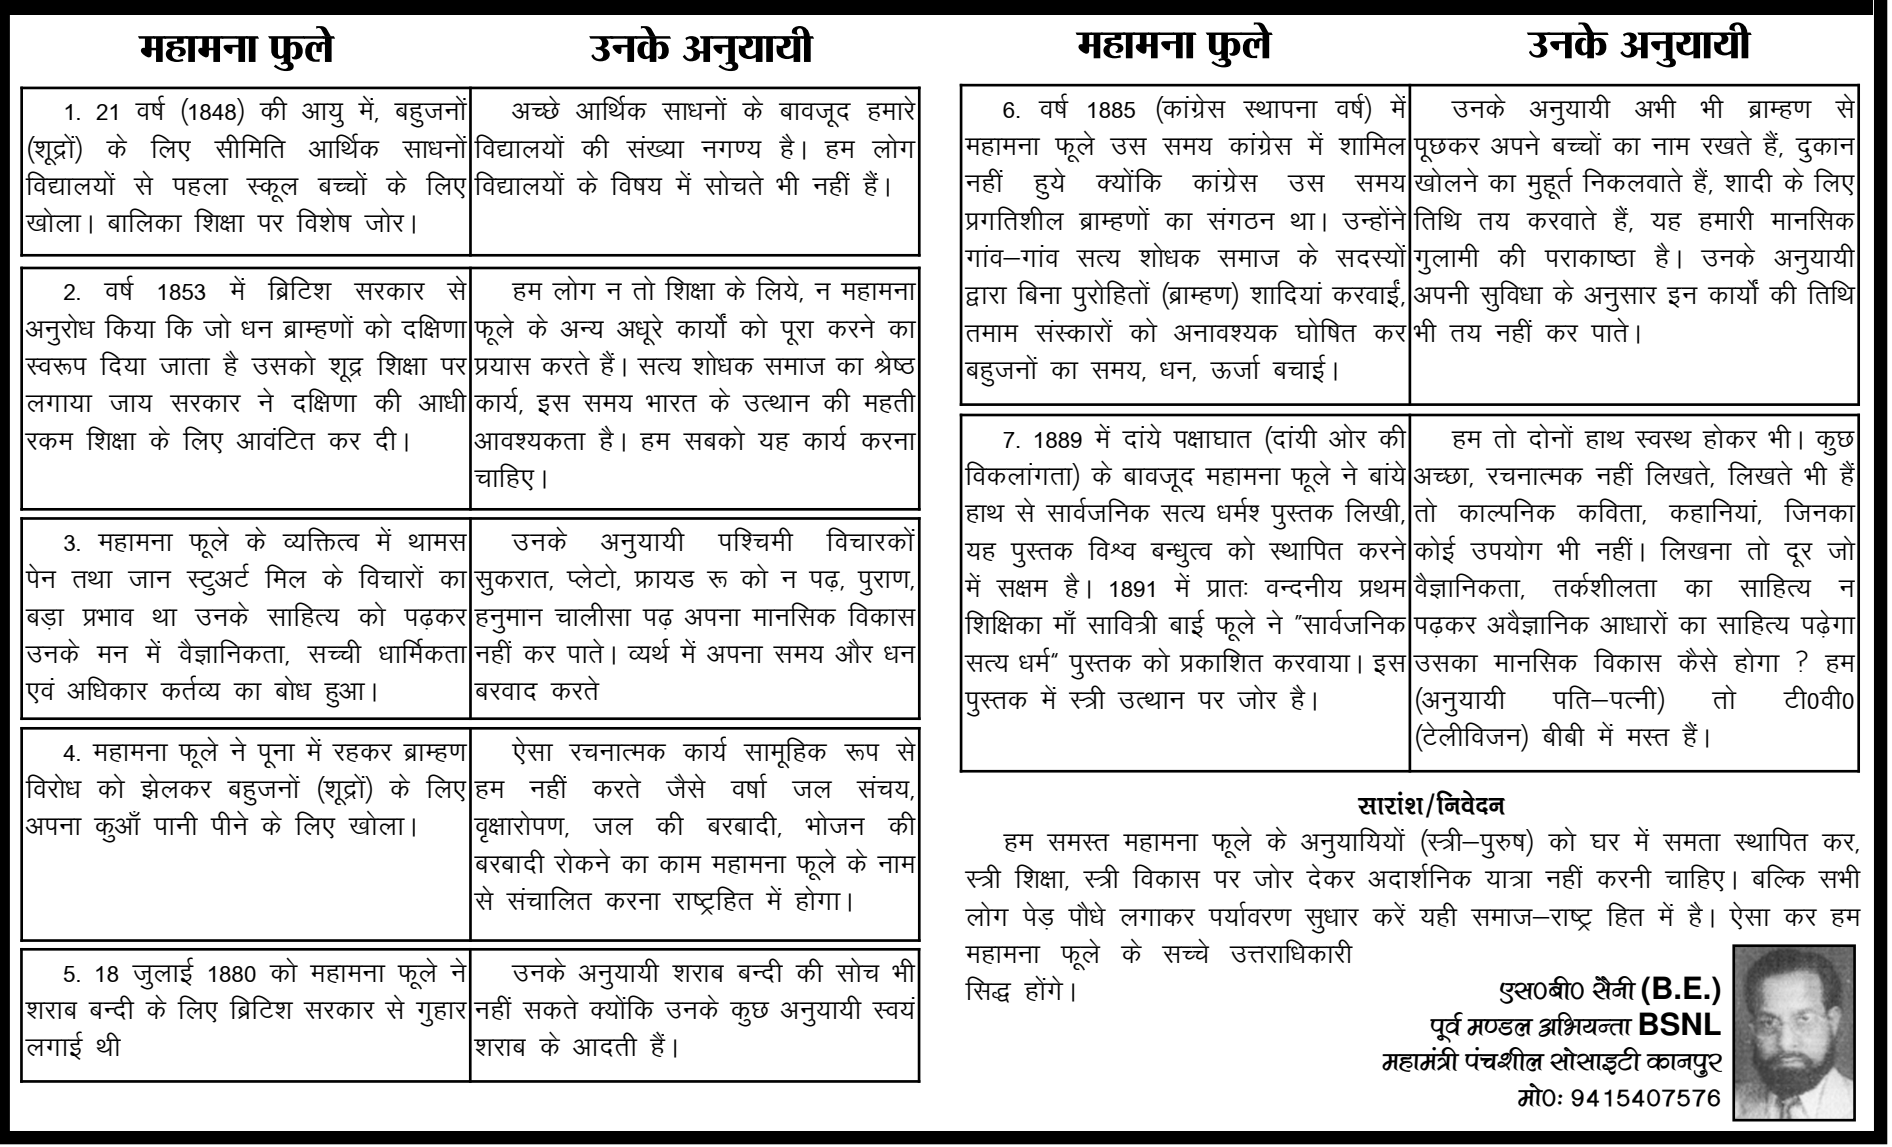 महामना फुले
उनके अनुयायी
1. 21 वर्ष (1848) की आयु में, बहुजनों
(शूद्रों) के लिए सीमिति आर्थिक साधनों
विद्यालयों से पहला स्कूल बच्चों के लिए
खोला। बालिका शिक्षा पर विशेष जोर।
अच्छे आर्थिक साधनों के बावजूद हमारे
विद्यालयों की संख्या नगण्य है। हम लोग
विद्यालयों के विषय में सोचते भी नहीं हैं।
2. वर्ष 1853 में ब्रिटिश सरकार से
अनुरोध किया कि जो धन ब्राम्हणों को दक्षिणा
स्वरूप दिया जाता है उसको शूद्र शिक्षा पर
लगाया जाय सरकार ने दक्षिणा की आधी
रकम शिक्षा के लिए आवंटित कर दी।
हम लोग न तो शिक्षा के लिये, न महामना
फूले के अन्य अधूरे कार्यों को पूरा करने का
प्रयास करते हैं। सत्य शोधक समाज का श्रेष्ठ
कार्य, इस समय भारत के उत्थान की महती
आवश्यकता है। हम सबको यह कार्य करना
चाहिए।
3. महामना फूले के व्यक्तित्व में थामस
पेन तथा जान स्टुअर्ट मिल के विचारों का
बड़ा प्रभाव था उनके साहित्य को पढ़कर
उनके मन में वैज्ञानिकता, सच्ची धार्मिकता
एवं अधिकार कर्तव्य का बोध हुआ।
उनके अनुयायी पश्चिमी विचारकों
सुकरात, प्लेटो, फ्रायड रू को न पढ़, पुराण,
हनुमान चालीसा पढ़ अपना मानसिक विकास
नहीं कर पाते। व्यर्थ में अपना समय और धन
बरवाद करते
4. महामना फूले ने पूना में रहकर ब्राम्हण
विरोध को झेलकर बहुजनों (शूद्रों) के लिए
अपना कुआँ पानी पीने के लिए खोला।
ऐसा रचनात्मक कार्य सामूहिक रूप से
हम नहीं करते जैसे वर्षा जल संचय,
वृक्षारोपण, जल की बरबादी, भोजन की
बरबादी रोकने का काम महामना फूले के नाम
से संचालित करना राष्ट्रहित में होगा।
5. 18 जुलाई 1880 को महामना फूले ने
शराब बन्दी के लिए ब्रिटिश सरकार से गुहार
लगाई थी
उनके अनुयायी शराब बन्दी की सोच भी
नहीं सकते क्योंकि उनके कुछ अनुयायी स्वयं
शराब के आदती हैं।
महामना फुले
उनके अनुयायी
6. वर्ष 1885 (कांग्रेस स्थापना वर्ष) में
महामना फूले उस समय कांग्रेस में शामिल
नहीं हुये क्योंकि कांग्रेस उस समय
प्रगतिशील ब्राम्हणों का संगठन था। उन्होंने
गांव–गांव सत्य शोधक समाज के सदस्यों
द्वारा बिना पुरोहितों (ब्राम्हण) शादियां करवाईं,
तमाम संस्कारों को अनावश्यक घोषित कर
बहुजनों का समय, धन, ऊर्जा बचाई।
उनके अनुयायी अभी भी ब्राम्हण से
पूछकर अपने बच्चों का नाम रखते हैं, दुकान
खोलने का मुहूर्त निकलवाते हैं, शादी के लिए
तिथि तय करवाते हैं, यह हमारी मानसिक
गुलामी की पराकाष्ठा है। उनके अनुयायी
अपनी सुविधा के अनुसार इन कार्यों की तिथि
भी तय नहीं कर पाते।
7. 1889 में दांये पक्षाघात (दांयी ओर की
विकलांगता) के बावजूद महामना फूले ने बांये
हाथ से सार्वजनिक सत्य धर्मश् पुस्तक लिखी,
यह पुस्तक विश्व बन्धुत्व को स्थापित करने
में सक्षम है। 1891 में प्रातः वन्दनीय प्रथम
शिक्षिका माँ सावित्री बाई फूले ने "सार्वजनिक
सत्य धर्म" पुस्तक को प्रकाशित करवाया। इस
पुस्तक में स्त्री उत्थान पर जोर है।
हम तो दोनों हाथ स्वस्थ होकर भी। कुछ
अच्छा, रचनात्मक नहीं लिखते, लिखते भी हैं
तो काल्पनिक कविता, कहानियां, जिनका
कोई उपयोग भी नहीं। लिखना तो दूर जो
वैज्ञानिकता, तर्कशीलता का साहित्य न
पढ़कर अवैज्ञानिक आधारों का साहित्य पढ़ेगा
उसका मानसिक विकास कैसे होगा ? हम
(अनुयायी पति–पत्नी) तो टी0वी0
(टेलीविजन) बीबी में मस्त हैं।
सारांश/निवेदन
हम समस्त महामना फूले के अनुयायियों (स्त्री–पुरुष) को घर में समता स्थापित कर,
स्त्री शिक्षा, स्त्री विकास पर जोर देकर अदार्शनिक यात्रा नहीं करनी चाहिए। बल्कि सभी
लोग पेड़ पौधे लगाकर पर्यावरण सुधार करें यही समाज–राष्ट्र हित में है। ऐसा कर हम
महामना फूले के सच्चे उत्तराधिकारी
सिद्ध होंगे।
एस0बी0 सैनी (B.E.)
पूर्व मण्डल अभियन्ता BSNL
महामंत्री पंचशील सोसाइटी कानपुर
मो0: 9415407576